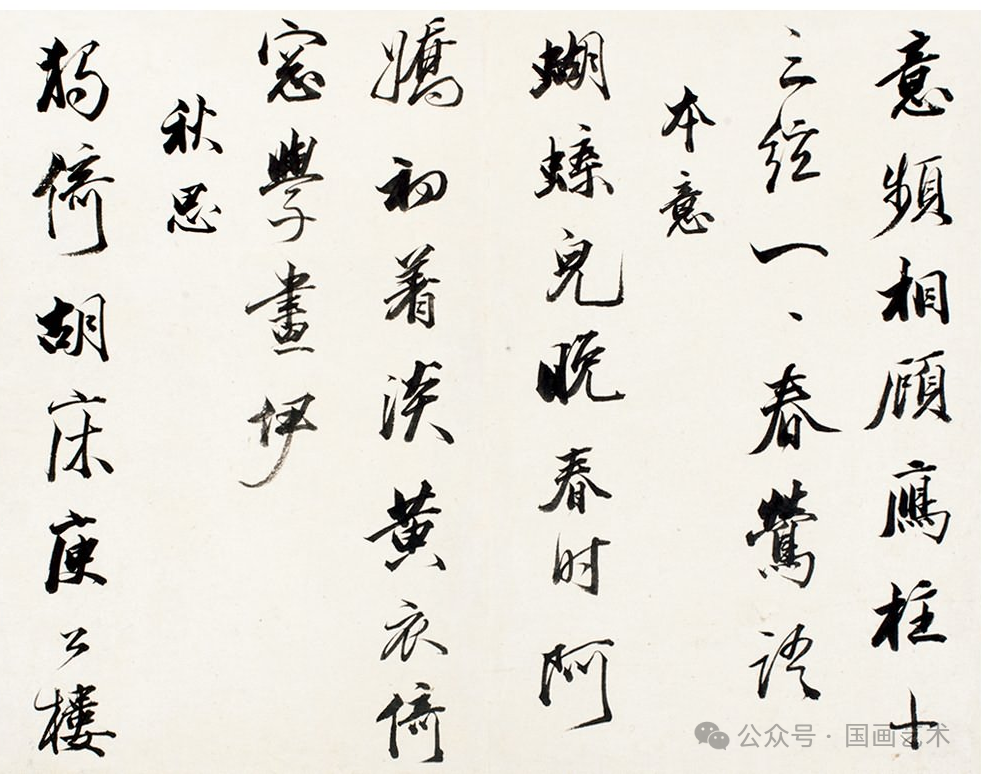 意頻相顧鴈柱十
三絃一、春鶯語
本意
蝴蝶兒晚春时阿
嬌初着淡黄衣倚
窓學畫伊
秋思
獨倚胡床庾公樓
公众号·国画艺术